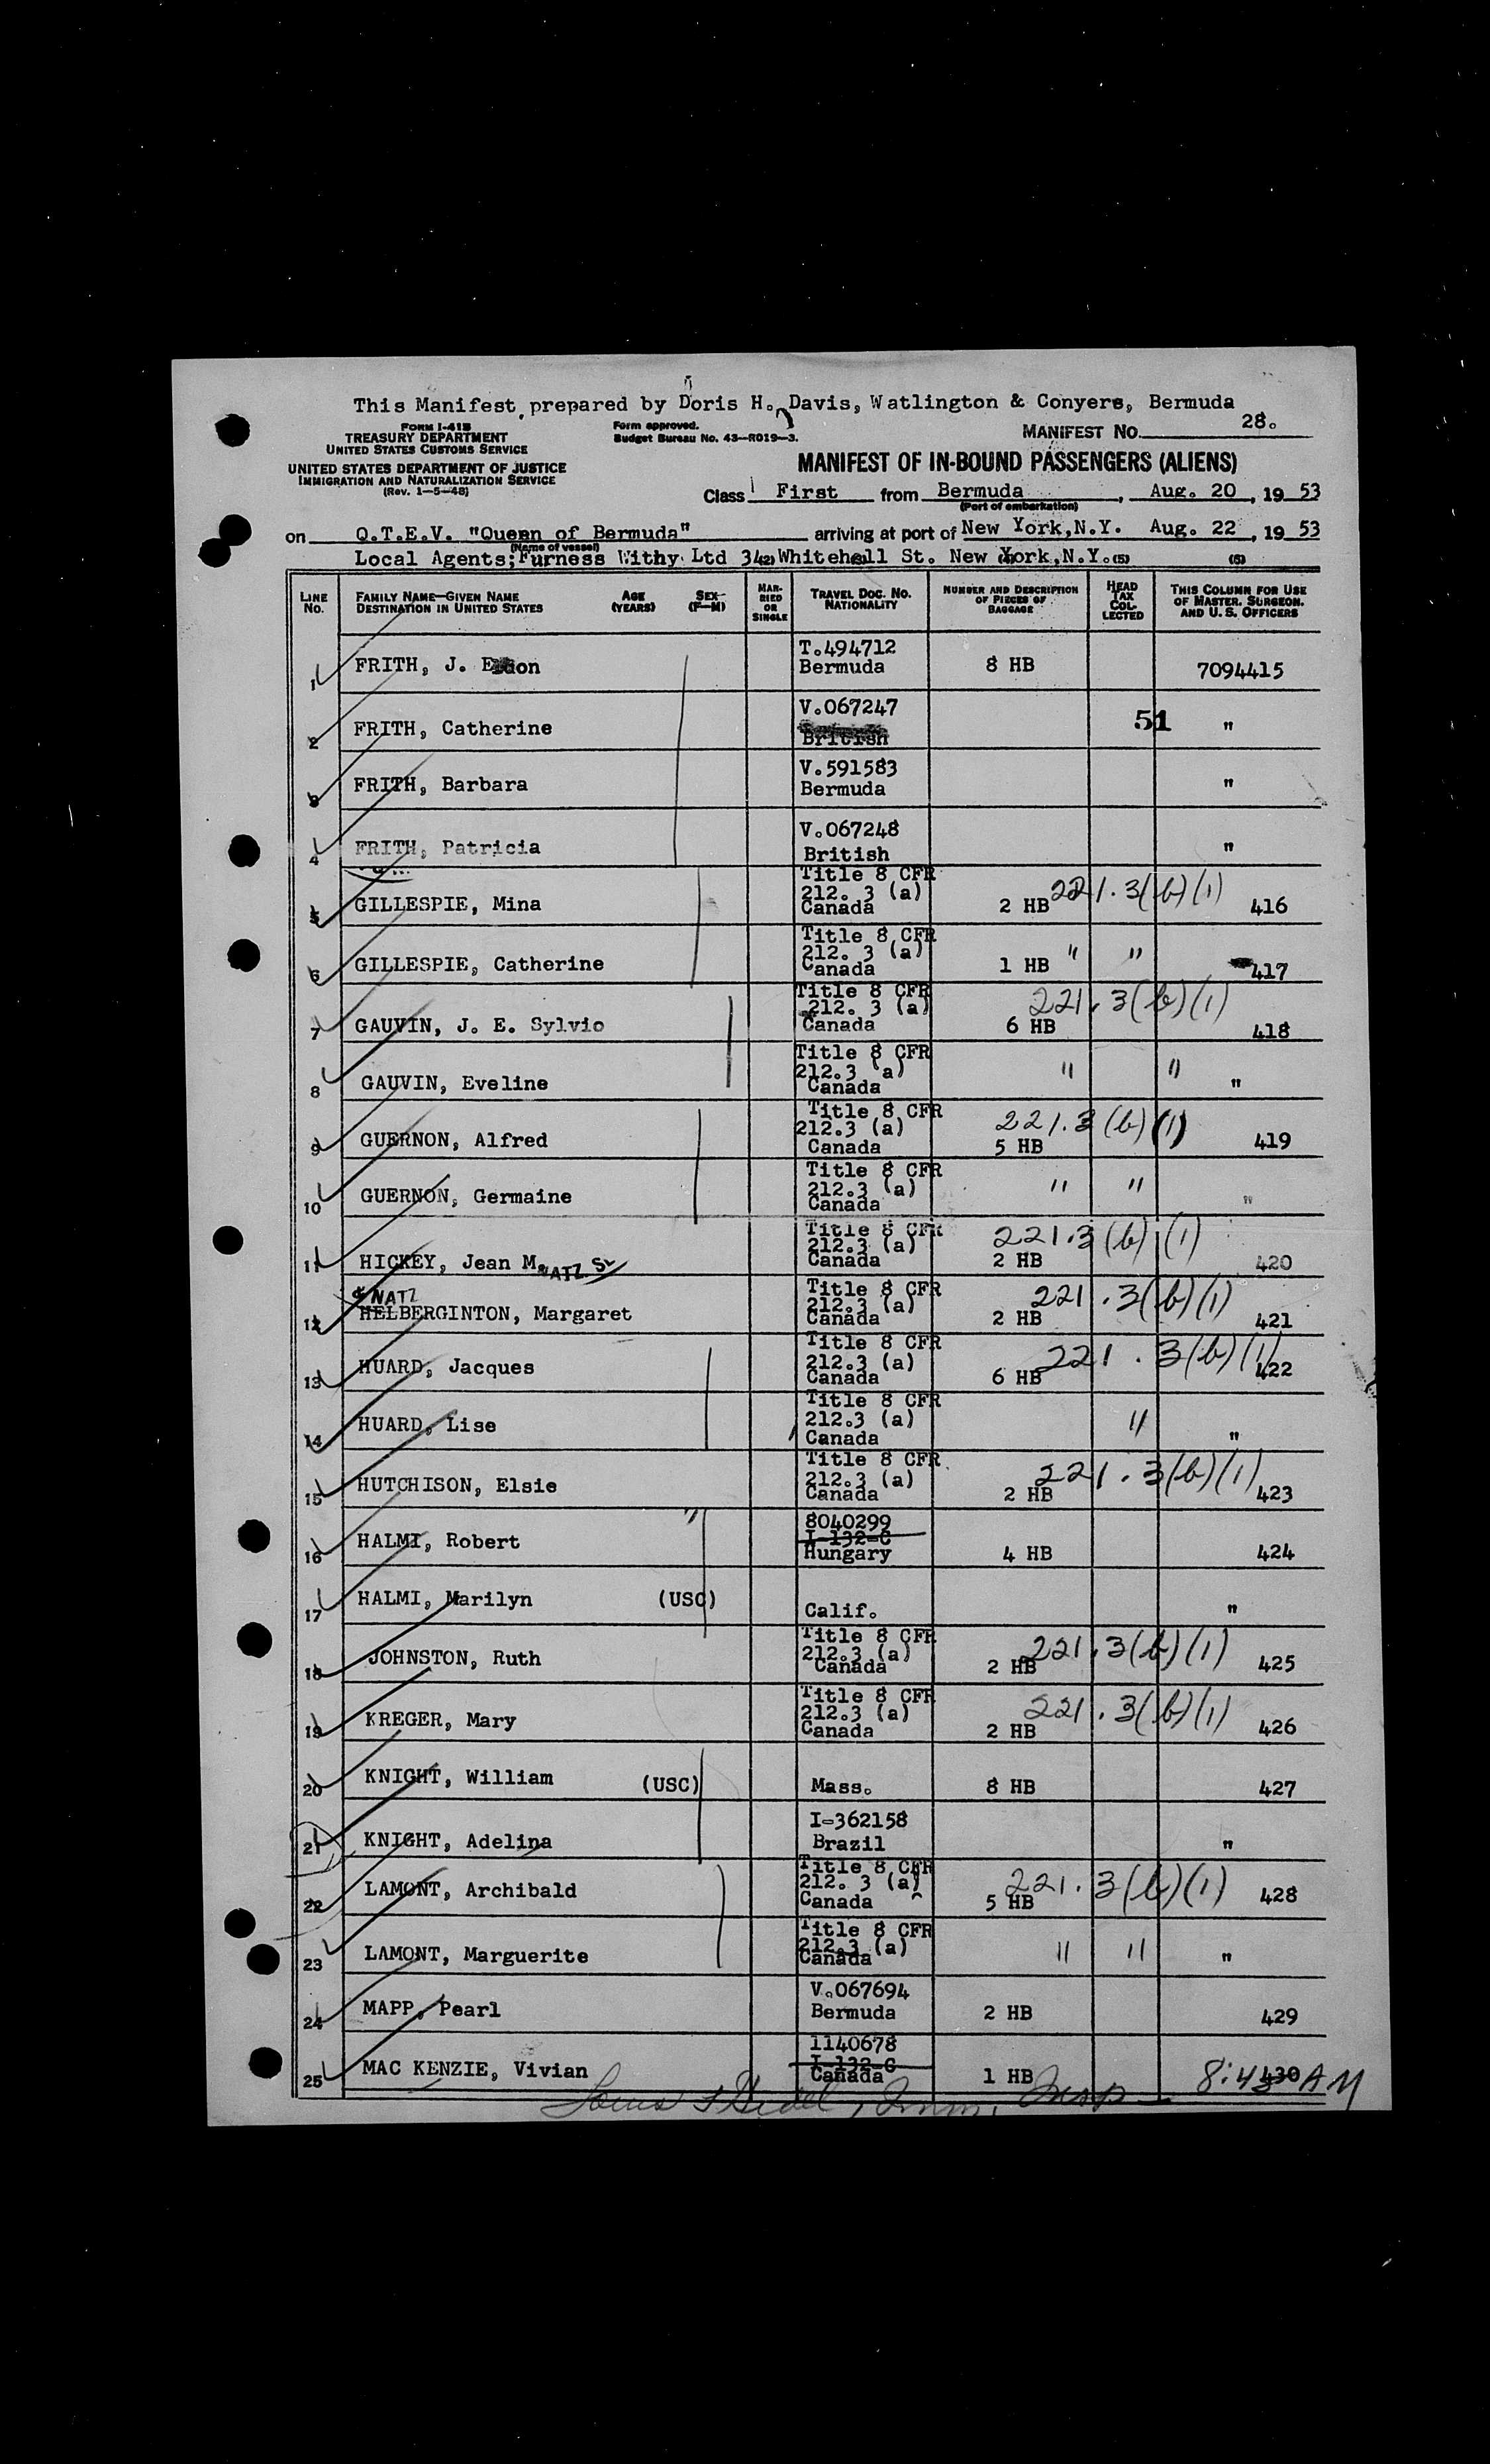 This Manifest prepared by Doris H. Davis, Watlington & Conyers, Bermuda
FORM I-418
TREASURY DEPARTMENT
UNITED STATES CUSTOMS SERVICE
UNITED STATES DEPARTMENT OF JUSTICE
IMMIGRATION AND NATURALIZATION SERVICE
(Rev. 1-5-48)
Form approved.
Budget Bureau No. 43-R019-3.
MANIFEST NO. 28.
MANIFEST OF IN-BOUND PASSENGERS (ALIENS)
Class First from Bermuda, Aug. 20, 19 53
(Port of embarkation)
on Q.T.E.V. "Queen of Bermuda" arriving at port of New York, N.Y. Aug. 22, 19 53
(Name of vessel)
Local Agents; Furness Withy Ltd 34 Whitehall St. New York, N.Y. (5) (5)
LINE NO. FAMILY NAME—GIVEN NAME DESTINATION IN UNITED STATES AGE (YEARS) SEX (F-M) MARRIED OR SINGLE TRAVEL DOC. NO. NATIONALITY NUMBER AND DESCRIPTION OF PIECES OF BAGGAGE HEAD TAX COLLECTED THIS COLUMN FOR USE OF MASTER, SURGEON, AND U. S. OFFICERS
T.494712
1 FRITH, J. Bermuda 8 HB 7094415
V.067247
2 FRITH, Catherine British 51 "
V.591583
3 FRITH, Barbara Bermuda "
V.067248
4 FRITH, Patricia British "
Title 8 CFR
212. 3 (a) 221.3(b)(1)
5 GILLESPIE, Mina Canada 2 HB 416
Title 8 CFR
212. 3 (a) " "
6 GILLESPIE, Catherine Canada 1 HB 417
Title 8 CFR
212. 3 (a) 221.3(b)(1)
7 GAUVIN, J. E. Sylvio Canada 6 HB 418
Title 8 CFR
212.3 (a) " "
8 GAUVIN, Eveline Canada "
Title 8 CFR
212.3 (a) 221.3(b)(1)
9 GUERNON, Alfred Canada 5 HB 419
Title 8 CFR
212.3 (a) " "
10 GUERNON, Germaine Canada "
Title 8 CFR
212.3 (a) 221.3(b)(1)
11 HICKEY, Jean M. Canada 2 HB 420
NATZ
Title 8 CFR
212.3 (a) 221.3(b)(1)
12 HELBERGINTON, Margaret Canada 2 HB 421
Title 8 CFR
212.3 (a) 221.3(b)(1)
13 HUARD, Jacques Canada 6 HB 422
Title 8 CFR
212.3 (a) "
14 HUARD, Lise Canada "
Title 8 CFR
212.3 (a) 221.3(b)(1)
15 HUTCHISON, Elsie Canada 2 HB 423
8040299
I-132-C
16 HALMI, Robert Hungary 4 HB 424
17 HALMI, Marilyn (USC) Calif. "
Title 8 CFR
212.3 (a) 221.3(b)(1)
18 JOHNSTON, Ruth Canada 2 HB 425
Title 8 CFR
212.3 (a) 221.3(b)(1)
19 KREGER, Mary Canada 2 HB 426
20 KNIGHT, William (USC) Mass. 8 HB 427
I-362158
21 KNIGHT, Adelina Brazil "
Title 8 CFR
212. 3 (a) 221.3(b)(1)
22 LAMONT, Archibald Canada 5 HB 428
Title 8 CFR
212.3 (a) " "
23 LAMONT, Marguerite Canada "
V.067694
24 MAPP, Pearl Bermuda 2 HB 429
1140678
I-132-C
25 MAC KENZIE, Vivian Canada 1 HB 430
8:45 AM